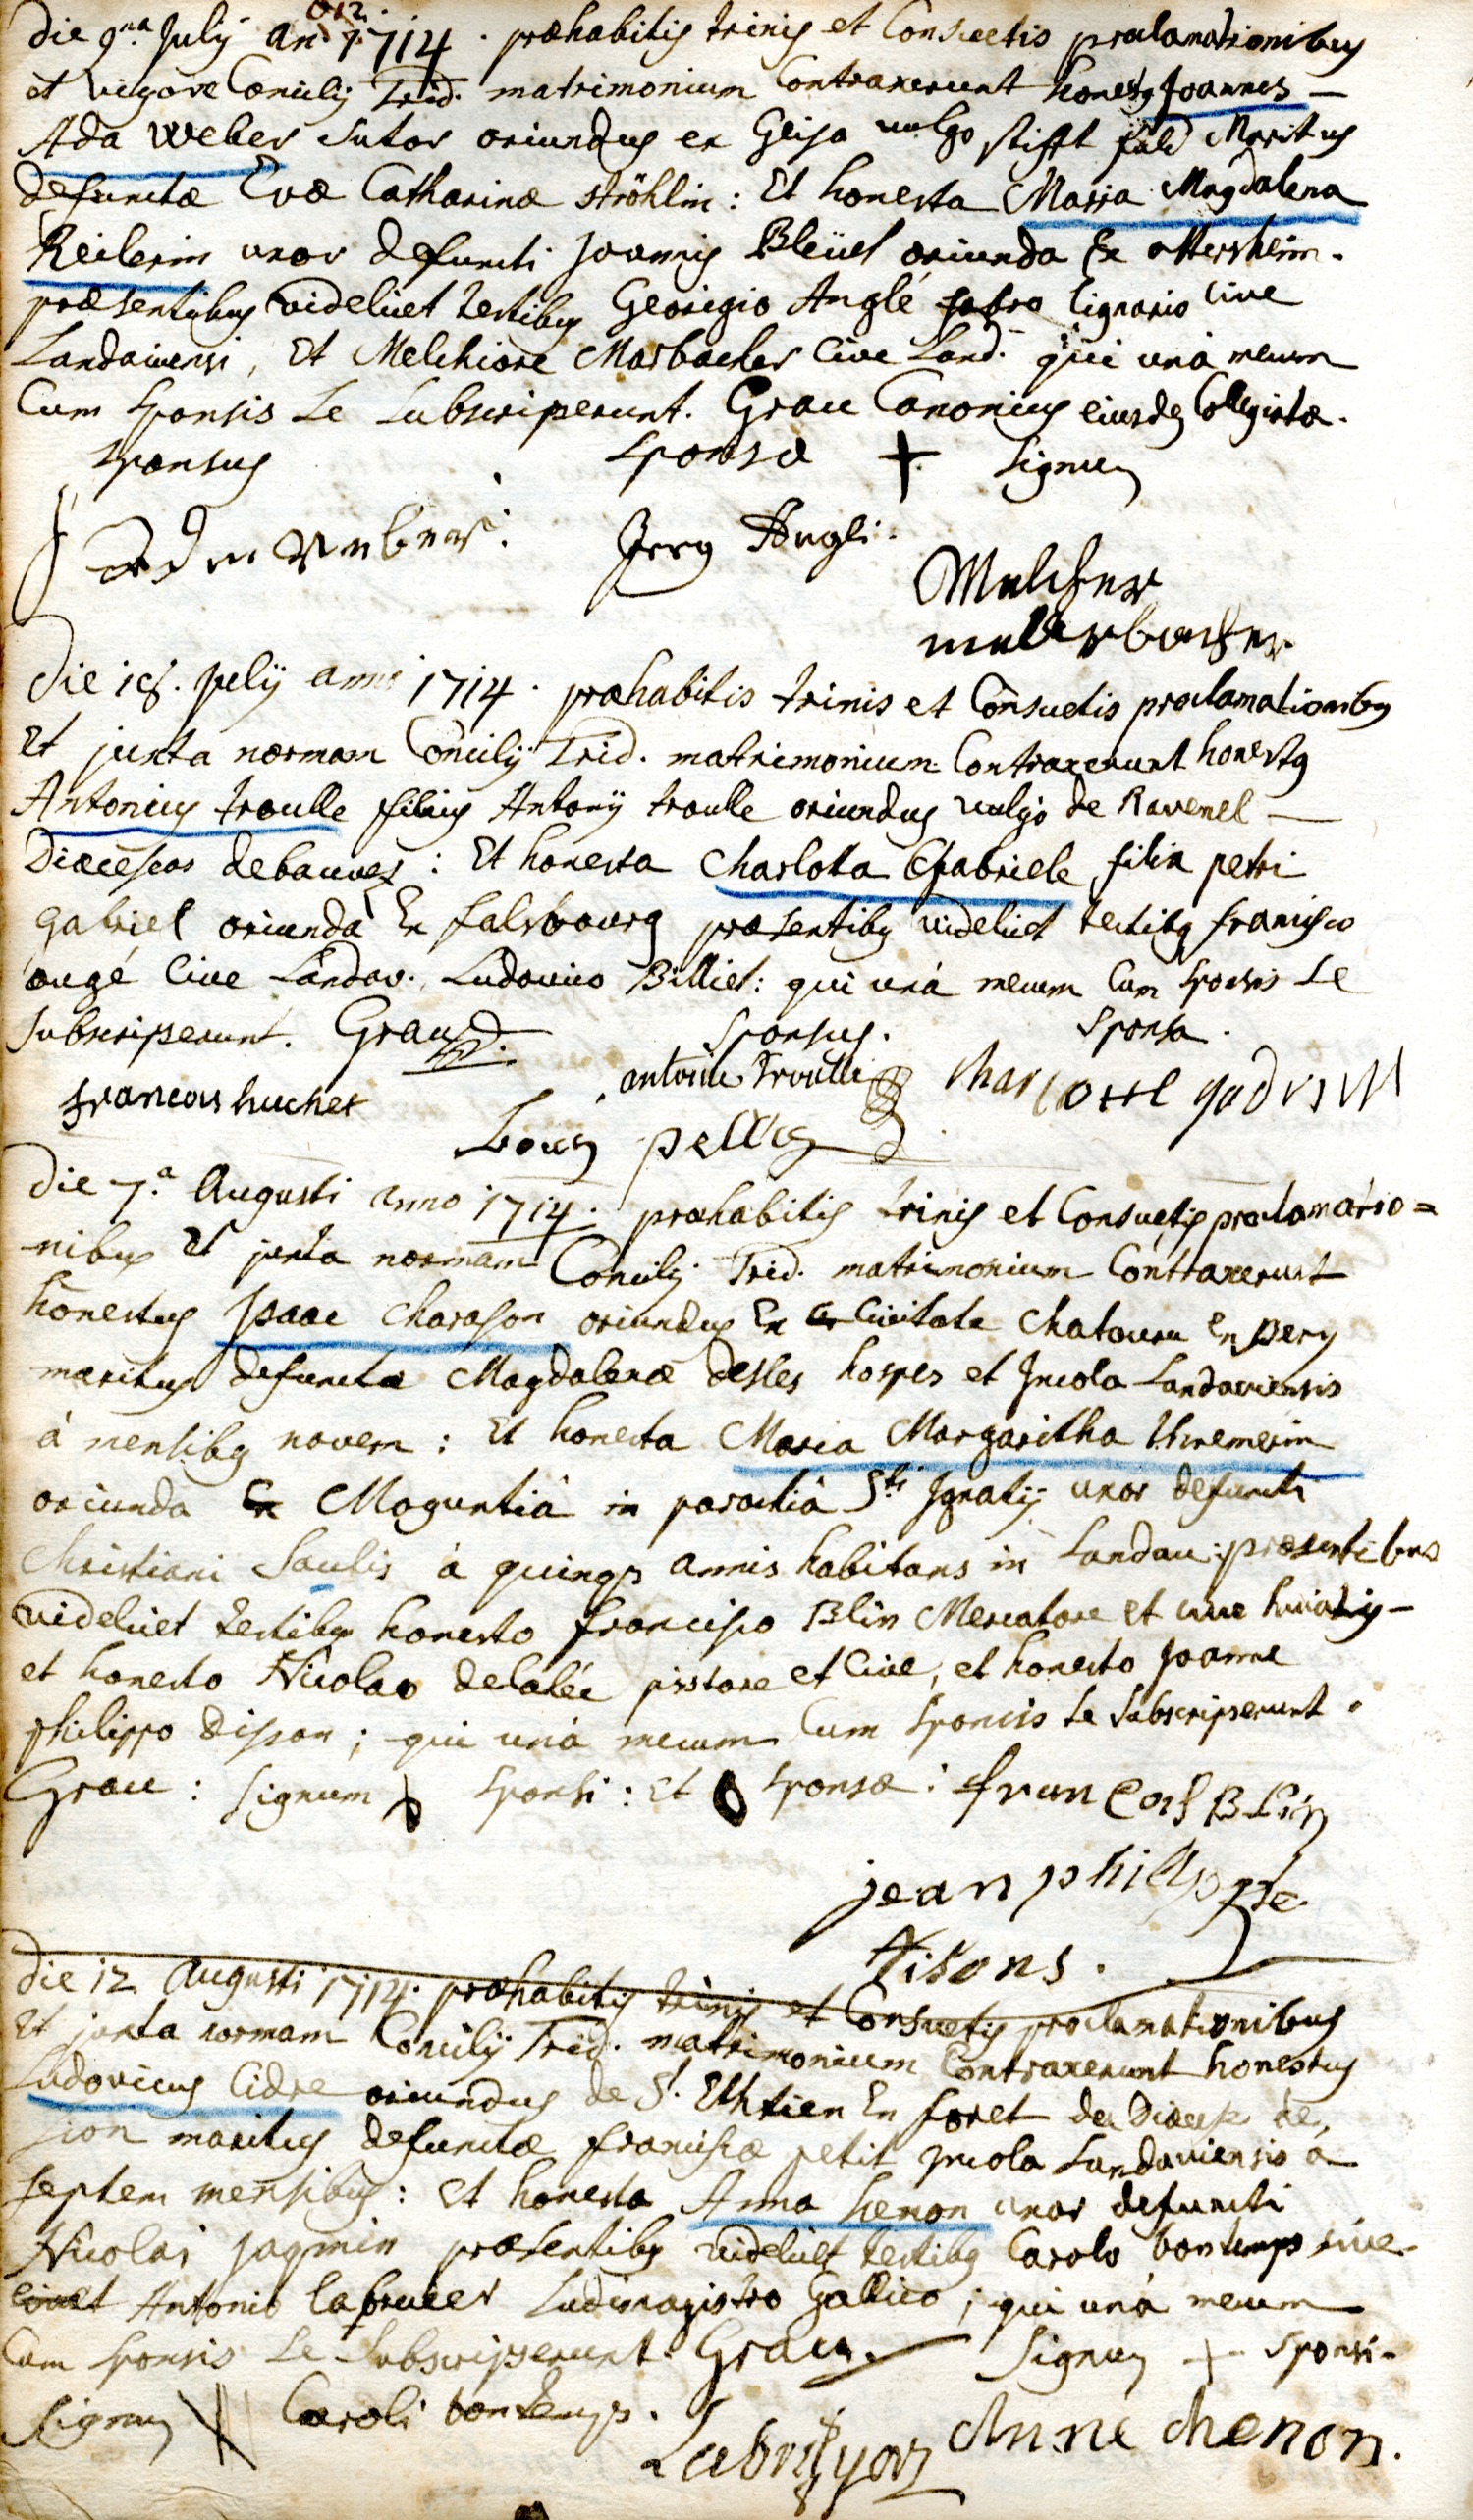 Die 9.na July an 1714. præhabitis trinis et Consuetis proclamationibus
et vigore Concilij Trid. matrimonium Contraxerunt honestg Joannes —
Ada Weber Sutor oriundus ex Geisa vulgo stifft fuld Maritus
defunctæ Evæ Catharinæ ströhlin: Et honesta Maria Magdalena
Reilerin uxor defuncti Joannis Bleüel oriunda Ex ottersheim.
præsentibus videlicet testibus Georigio Anglé fabro lignario Cive
Landaviensi, Et Melchiore Marbacher Cive Land. qui unà mecum
Cum Sponsis se subscripserunt. Grau Canonicus eiusdem Collegiatæ.
Sponsus Sponsæ + Signum
Jerg Angli.
Melcher
Die 18. Julij anno 1714. præhabitis trinis et Consuetis proclamationibus
Et juxta normam Concilij Trid. matrimonium Contraxerunt honestg
Antonius troulle filius Antonij troulle oriundus vulgo de Ravenel —
Diœceseos debauvez: Et honesta Charlotta Gabriele, filia petri
Gabriel oriunda Ex falsbourg præsentibg videlicet testibg francisco
augé Cive Landav. Ludovico Billiet: qui unà mecum Cum Sponsis se
Subscripserunt. Grau Sponsus. Sponsa.
francois huchet antoine Troulle Charlotte gabriell
Louis
Die 7.a Augusti anno 1714. præhabitis trinis et Consuetis proclamatio=
nibus Et juxta normam Concilij Trid. matrimonium Contraxerunt
honestus Isaac Charason oriundus Ex Civitate Chatouru en pery
maritus defunctæ Magdalenæ desles hospes et Incola Landaviensis
à mensibg novem: Et honesta Maria Margaritha
oriunda Ex Moguntiâ in parochiâ Sti Ignatij uxor defuncti
Christiani Saulis à quinqz annis habitans in Landau: præsentibus
videlicet testibus honesto francisco Blin Mercatore et cive huiatis —
et honesto Nicolao delalée pistore et Cive, et honesto Joanne
philippo dison; qui unà mecum Cum Sponsis se Subscripserunt.
Grau: Signum Sponsi: Et Sponsæ: francois Blin
jean philippe
tisons.
Die 12 Augusti 1714. præhabitis trinis et Consuetis proclamationibus
Et juxta normam Concilij Trid. matrimonium Contraxerunt honestus
Ludovicus Cidre oriundus de St. Ethtien En foret
maritus defunctæ franciscæ petit Incola Landaviensis à
septem mensibus: Et honesta Anna henon uxor defuncti
Nicolai jaqmin præsentibg videlicet testibg Carolo bontemps cive
et Antonio Ludimagistro Gallico; qui unà mecum
Cum Sponsis se Subscripserunt. Grau. Signum + Sponsi.
Signum Caroli bontemps.
Anne chenon.